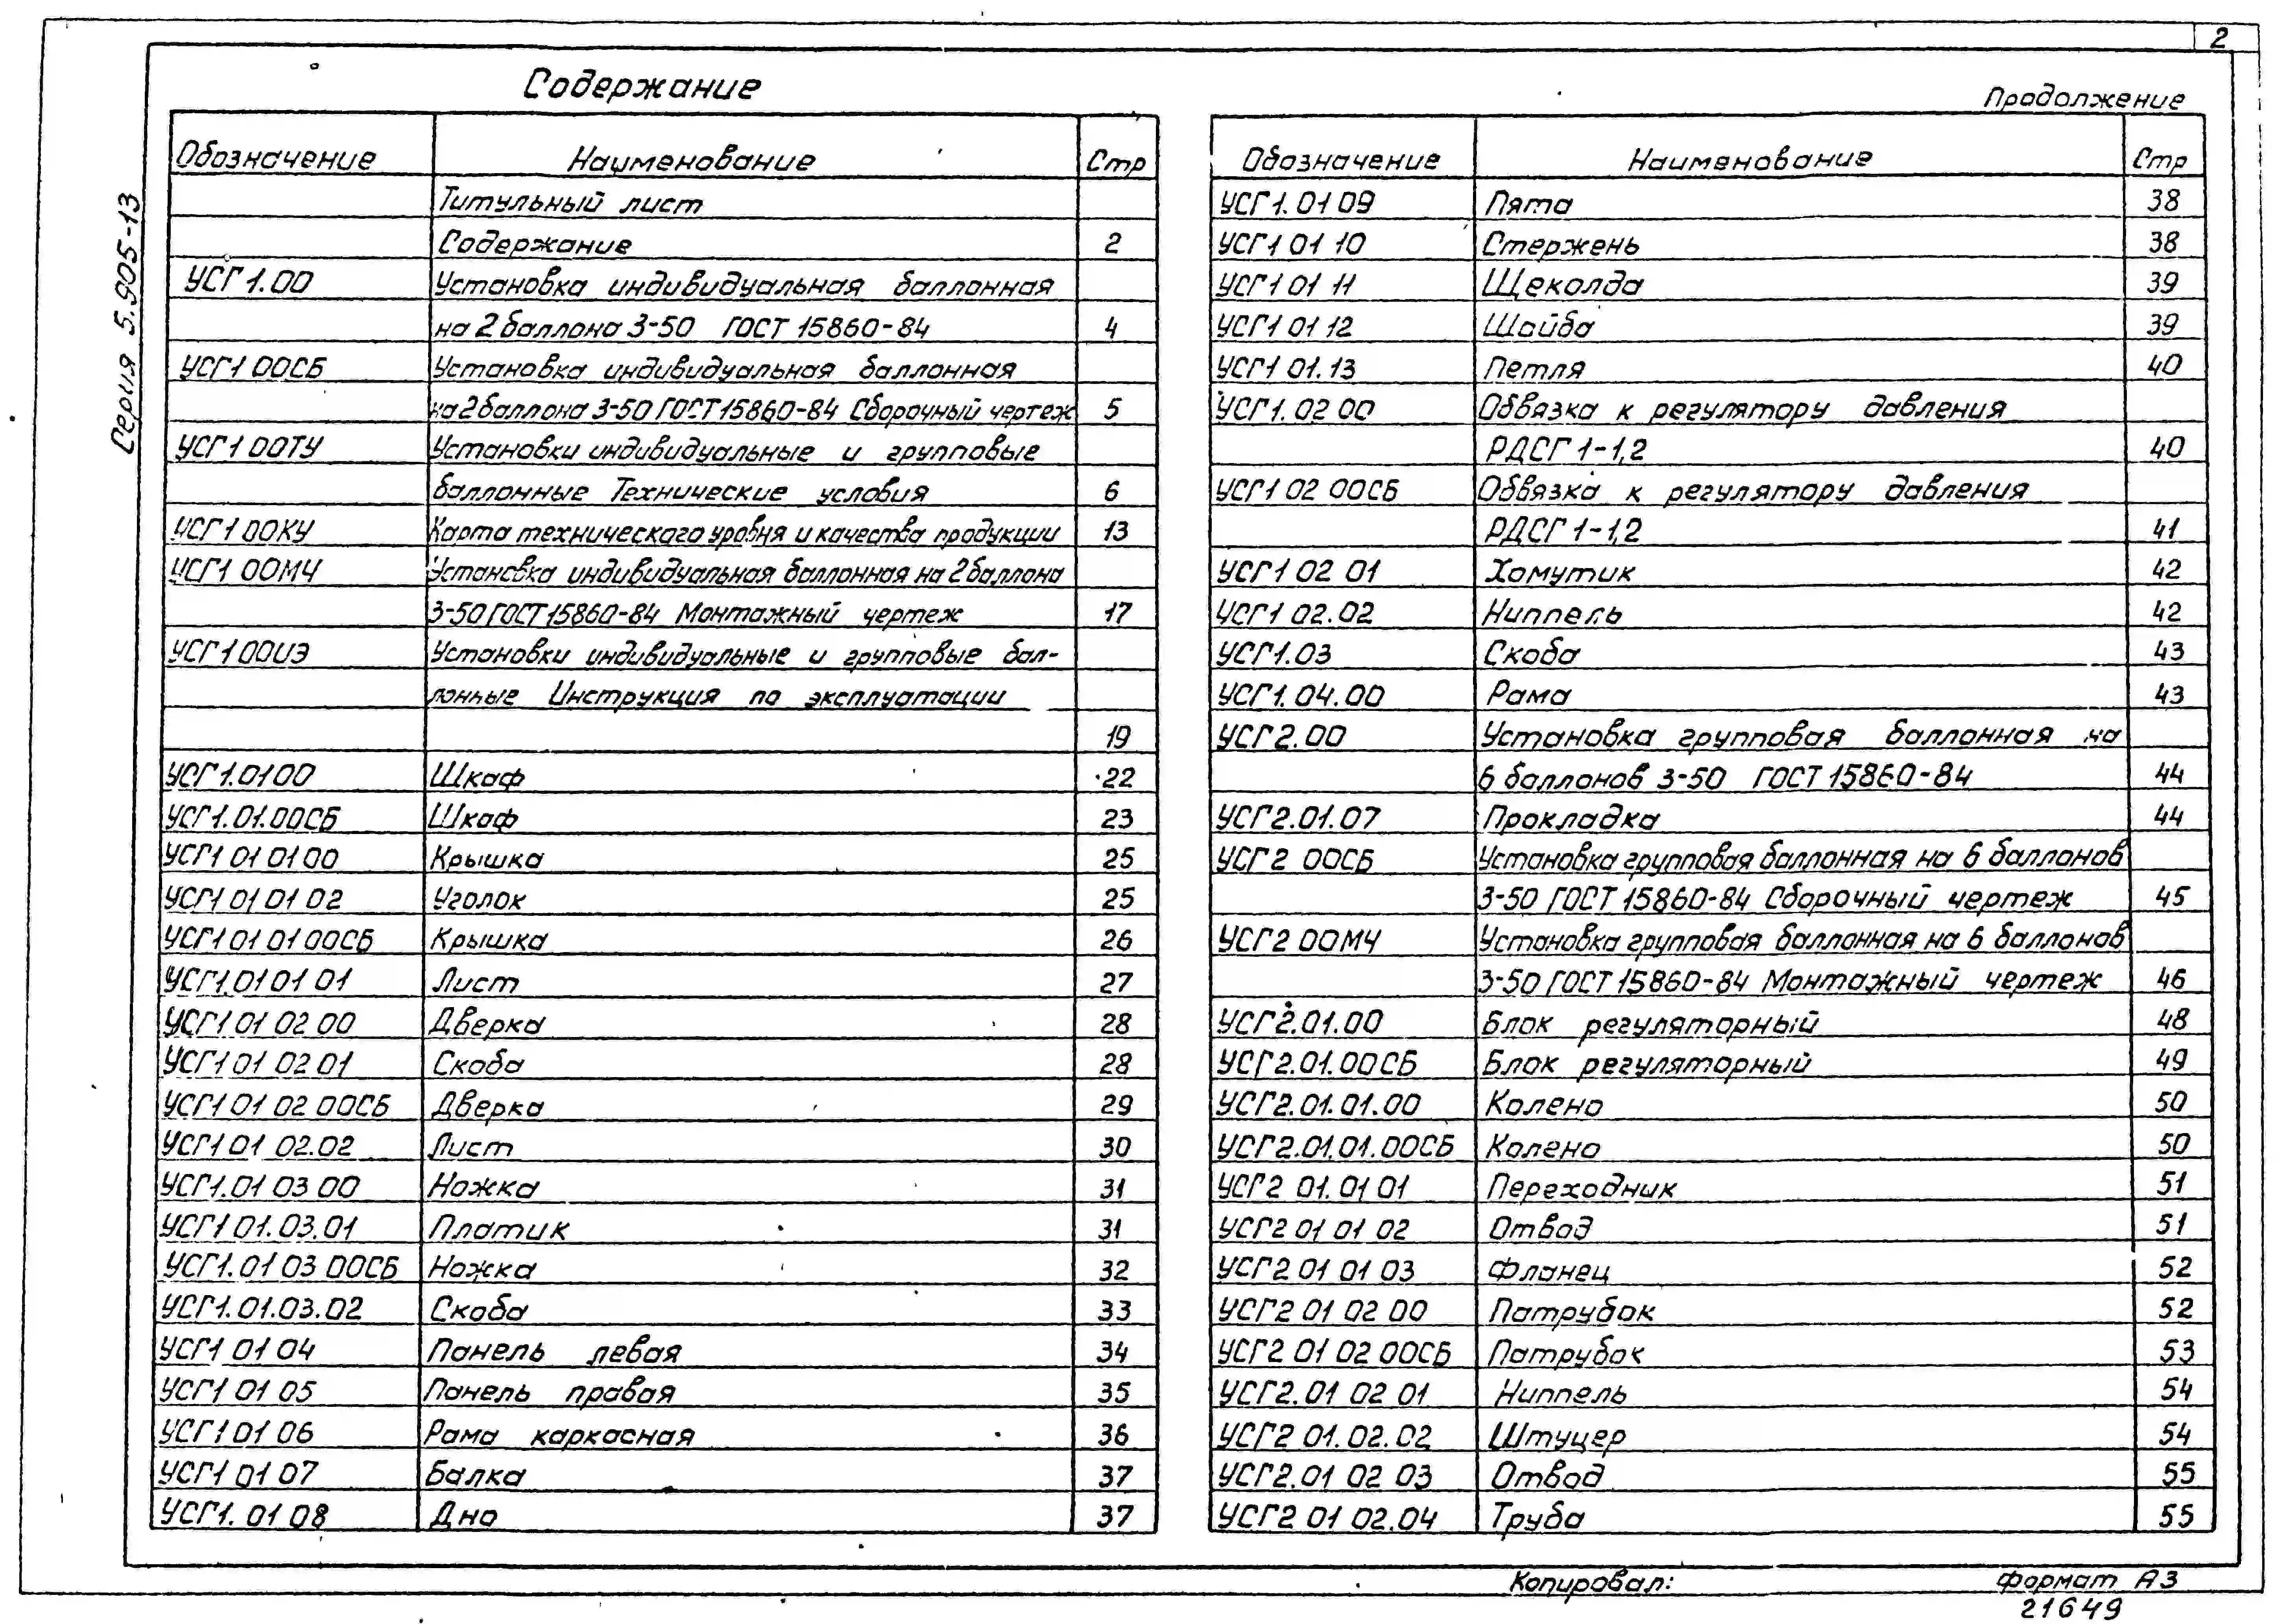 2
Серия 5.905-13
Содержание
Обозначение Наименование Стр
Титульный лист
Содержание 2
УСГ1.00 Установка индивидуальная баллонная
на 2 баллона 3-50 ГОСТ 15860-84 4
УСГ1 00СБ Установка индивидуальная баллонная
на 2 баллона 3-50 ГОСТ 15860-84 Сборочный чертеж 5
УСГ1 00ТУ Установки индивидуальные и групповые
баллонные Технические условия 6
УСГ1 00КУ Карта технического уровня и качества продукции 13
УСГ1 00МЧ Установка индивидуальная баллонная на 2 баллона
3-50 ГОСТ 15860-84 Монтажный чертеж 17
УСГ1 00ИЭ Установки индивидуальные и групповые бал-
лонные Инструкция по эксплуатации
19
УСГ1.01 00 Шкаф 22
УСГ1.01.00СБ Шкаф 23
УСГ1 01 01 00 Крышка 25
УСГ1 01 01 02 Уголок 25
УСГ1 01 01 00СБ Крышка 26
УСГ1.01 01 01 Лист 27
УСГ1 01 02 00 Дверка 28
УСГ1 01 02 01 Скоба 28
УСГ1 01 02 00СБ Дверка 29
УСГ1 01 02.02 Лист 30
УСГ1.01 03 00 Ножка 31
УСГ1 01.03.01 Платик 31
УСГ1.01 03 00СБ Ножка 32
УСГ1.01.03.02 Скоба 33
УСГ1 01 04 Панель левая 34
УСГ1 01 05 Панель правая 35
УСГ1 01 06 Рама каркасная 36
УСГ1 01 07 Балка 37
УСГ1. 01 08 Дно 37
Продолжение
Обозначение Наименование Стр
УСГ1. 01 09 Пята 38
УСГ1 01 10 Стержень 38
УСГ1 01 11 Щеколда 39
УСГ1 01 12 Шайба 39
УСГ1 01.13 Петля 40
УСГ1. 02 00 Обвязка к регулятору давления
РДСГ 1-1,2 40
УСГ1 02 00СБ Обвязка к регулятору давления
РДСГ 1-1,2 41
УСГ1 02 01 Хомутик 42
УСГ1 02.02 Ниппель 42
УСГ1.03 Скоба 43
УСГ1.04.00 Рама 43
УСГ2.00 Установка групповая баллонная на
6 баллонов 3-50 ГОСТ 15860-84 44
УСГ2.01.07 Прокладка 44
УСГ2 00СБ Установка групповая баллонная на 6 баллонов
3-50 ГОСТ 15860-84 Сборочный чертеж 45
УСГ2 00МЧ Установка групповая баллонная на 6 баллонов
3-50 ГОСТ 15860-84 Монтажный чертеж 46
УСГ2.01.00 Блок регуляторный 48
УСГ2.01.00СБ Блок регуляторный 49
УСГ2.01.01.00 Колено 50
УСГ2.01.01.00СБ Колено 50
УСГ2 01.01 01 Переходник 51
УСГ2 01 01 02 Отвод 51
УСГ2 01 01 03 Фланец 52
УСГ2 01 02 00 Патрубок 52
УСГ2 01 02 00СБ Патрубок 53
УСГ2.01 02 01 Ниппель 54
УСГ2 01.02.02 Штуцер 54
УСГ2.01 02 03 Отвод 55
УСГ2 01 02.04 Труба 55
Копировал: формат А3
21649